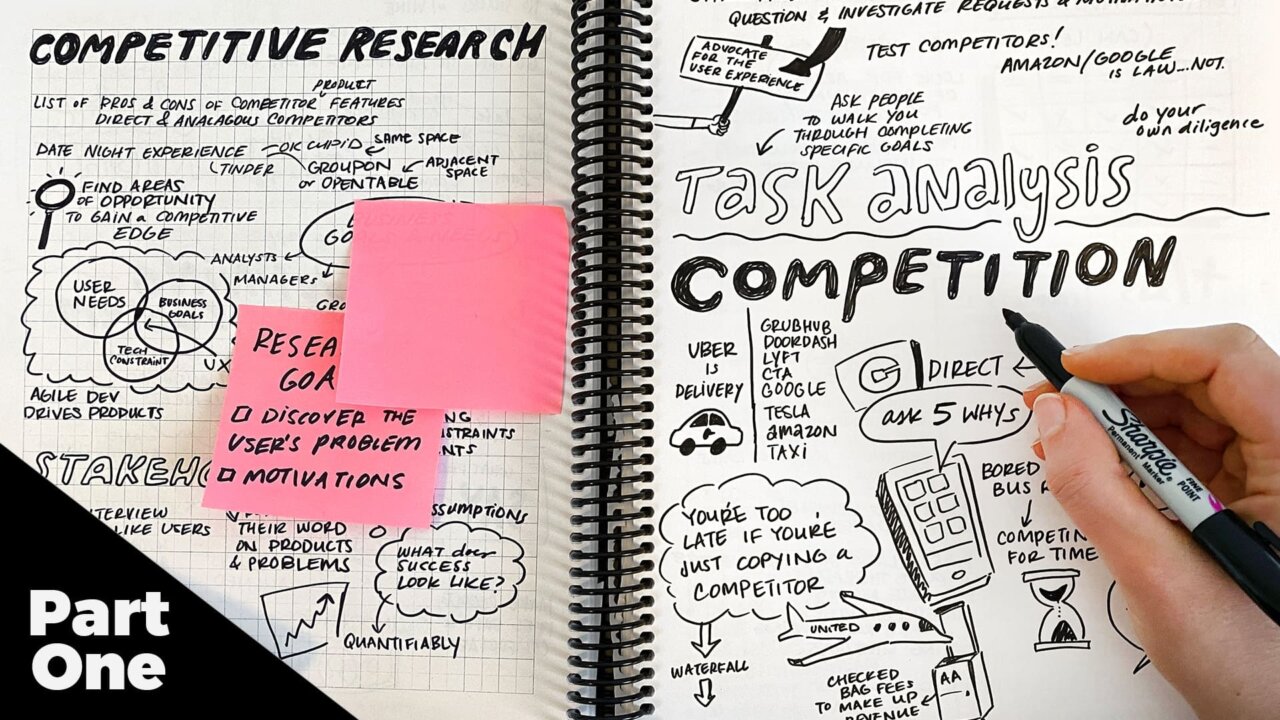 COMPETITIVE RESEARCH
PRODUCT
LIST OF PROS & CONS OF COMPETITOR FEATURES
DIRECT & ANALAGOUS COMPETITORS
DATE NIGHT EXPERIENCE
OK CUPID
SAME SPACE
TINDER
GROUPON
OR OPENTABLE
ADJACENT
SPACE
FIND AREAS
OF OPPORTUNITY
TO GAIN A COMPETITIVE
EDGE
ANALYSTS
MANAGERS
USER
NEEDS
BUSINESS
GOALS
TECH
CONSTRAINT
UX
AGILE DEV
DRIVES PRODUCTS
RESEA
GOA
DISCOVER THE
USER'S PROBLEM
MOTIVATIONS
STAKEHO
INTERVIEW
LIKE USERS
THEIR WORD
ON PRODUCTS
& PROBLEMS
SSUMPTIONS
WHAT does
SUCCESS
LOOK LIKE?
QUANTIFIABLY
Part
One
QUESTION & INVESTIGATE REQUESTS &
ADVOCATE
FOR THE
USER EXPERIENCE
TEST COMPETITORS!
AMAZON/GOOGLE
IS LAW...NOT.
ASK PEOPLE
TO WALK YOU
THROUGH COMPLETING
SPECIFIC GOALS
do your
own diligence
TASK ANALYSIS
COMPETITION
UBER
IS
DELIVERY
GRUBHUB
DOORDASH
LYFT
CTA
GOOGLE
TESLA
amazon
TAXI
G
DIRECT
ask 5 WHYs
BORED
BUS
COMPETIN
FOR TIME
YOU'RE TOO
LATE IF YOU'RE
JUST COPYING a
COMPETITOR
WATERFALL
UNITED
CHECKED
BAG FEES
TO MAKE UP
REVENUE
AA
Sharpie
FINE POINT
Permanent Marker